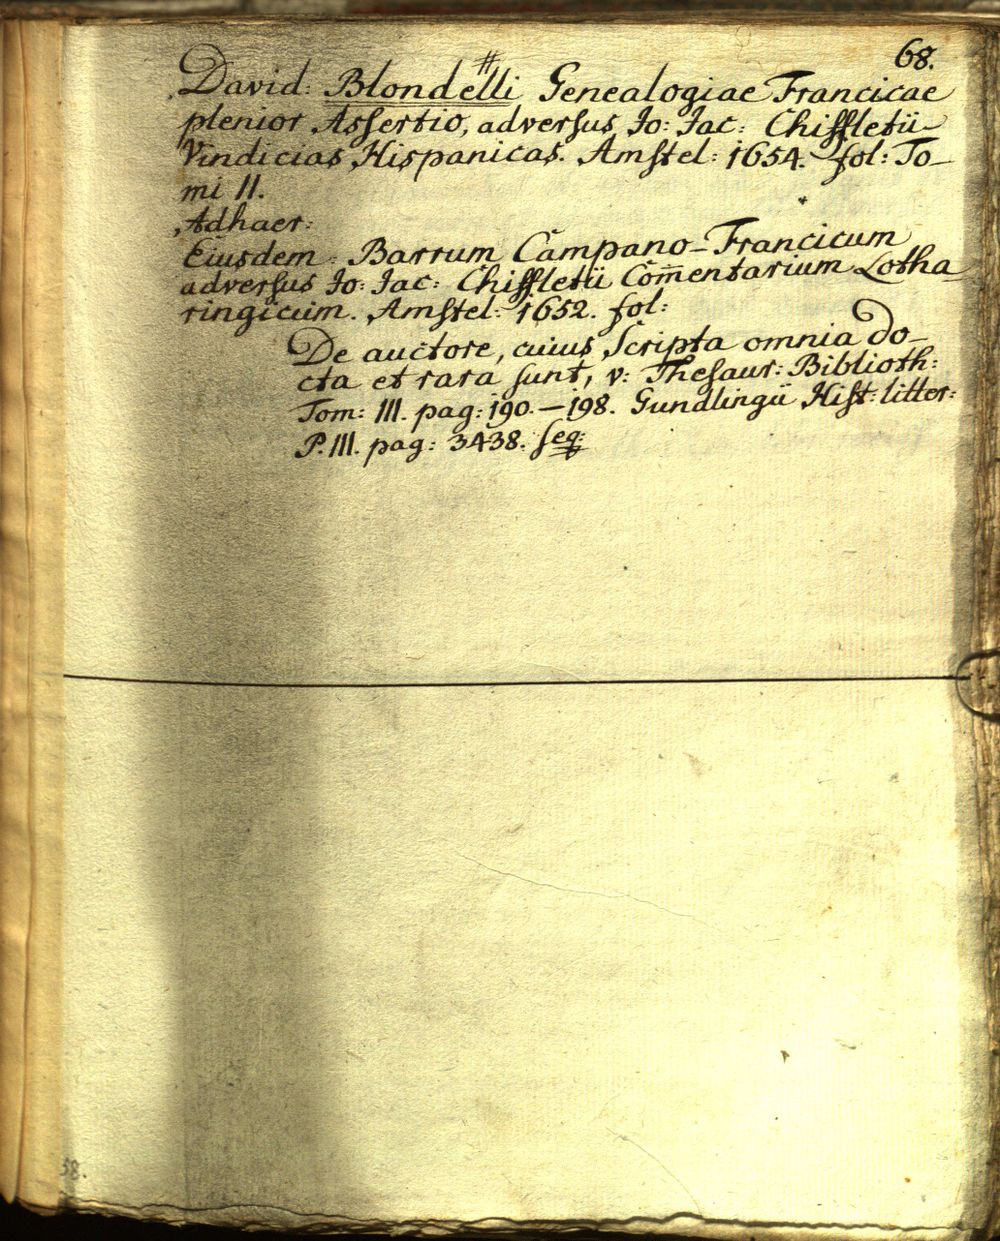 68.
David: Blondelli # Genealogiae Francicae
plenior Assertio, adversus Jo: Jac: Chiffletii
Vindicias Hispanicas. Amstel: 1654. fol: To-
mi II.
Adhaer:
Eiusdem: Barrum Campano-Francicum
adversus Jo: Jac: Chiffletii Com̄entarium Lotha
ringicum. Amstel: 1652. fol:
De auctore, cuius Scripta omnia do-
cta et rara sunt, v: Thesaur: Biblioth:
Tom: III. pag: 190.-198. Gundlingii Hist: litter:
P. III. pag: 3438. seq: